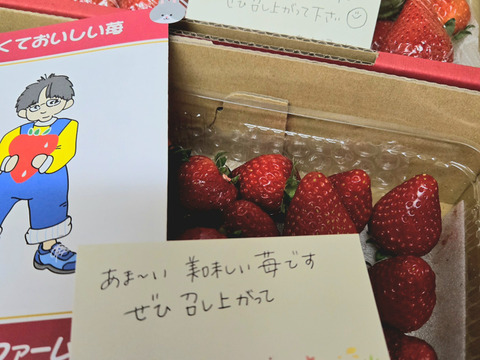 ぜひ召し上がって下さい☺
くておいしい苺
あま〜い 美味しい苺です
ぜひ 召し上がって
ファーム